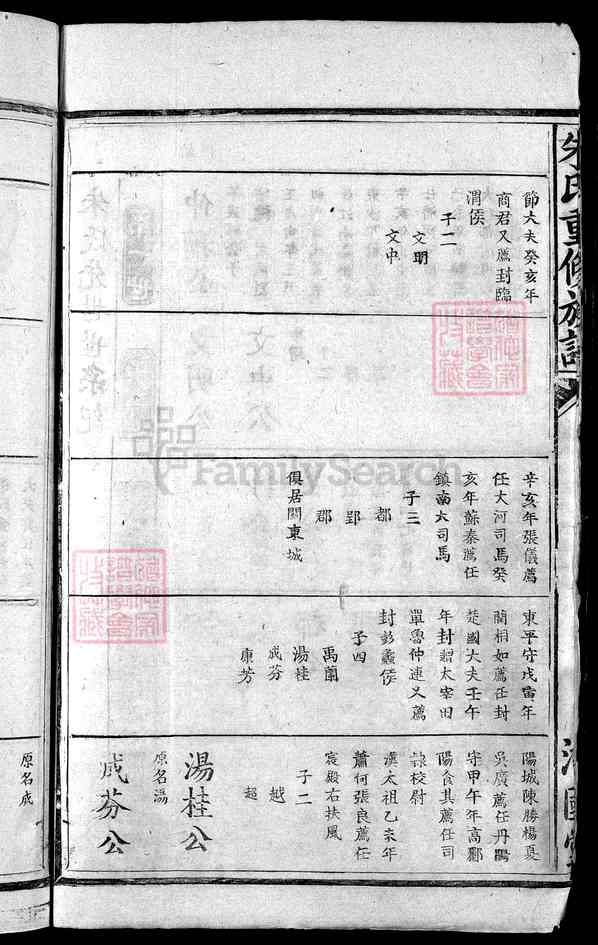 朱氏重修族譜
節大夫癸亥年
商君又薦封臨
渭侯
子二
文明
文中
辛亥年張儀薦
任大河司馬癸
亥年蘇秦薦任
鎮南大司馬
子三
都
郢
郡
俱居關東城
東平守戊寅年
藺相如薦任封
楚國大夫壬午
年封韶太宰田
單魯仲連又薦
封彭蠡侯
子四
禹蘭
湯桂
成芬
康芳
陽城陳勝楊夏
吳廣薦任丹陽
守甲午年高酈
陽食其薦任司
隸校尉
漢太祖乙未年
蕭何張良薦任
宸殿右扶風
子二
越
超
湯桂公
原名湯
成芬公
原名成
FamilySearch